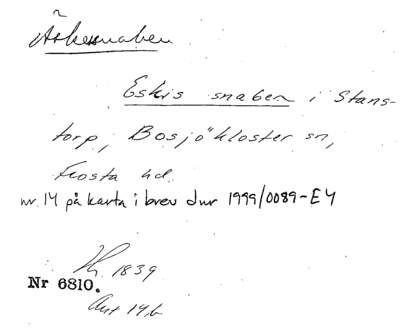 Äskesnaben
Eskis snaben i Stans-
torp, Bosjökloster sn,
Frosta hd.
nr. 14 på karta i brev dnr 1999/0089-E4
1839
Nr 6810.
Akt 14b